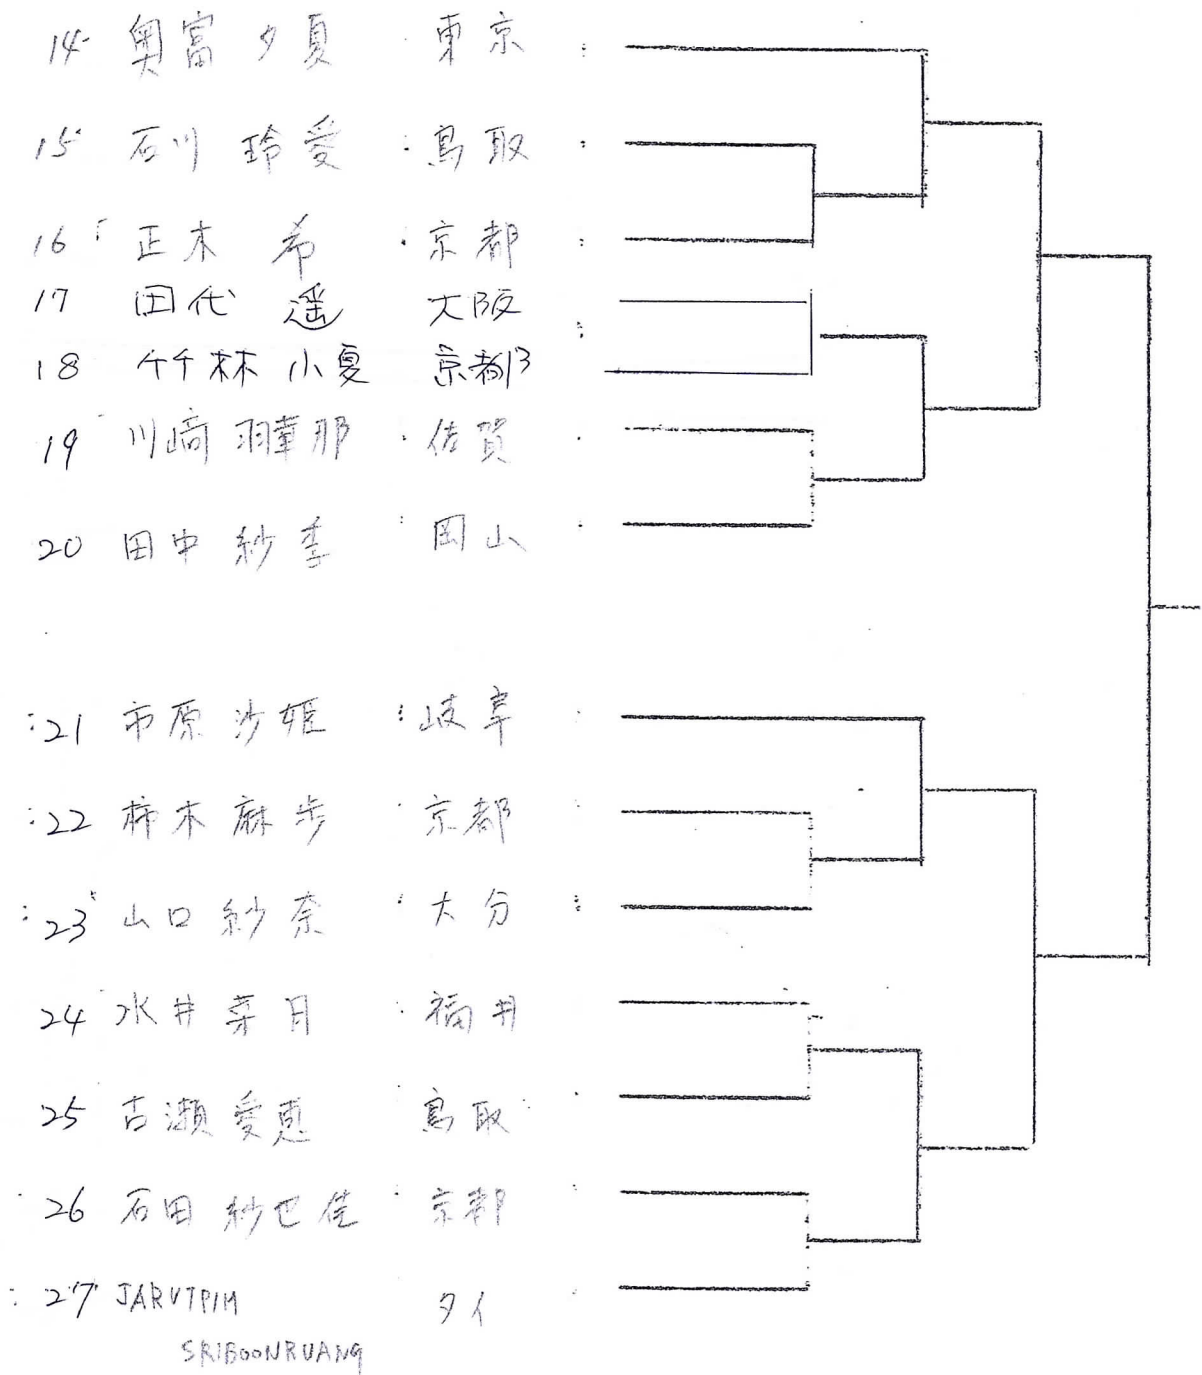 14 奥富 夕夏 東京
15 石川 玲愛 鳥取
16 正木 希 京都
17 田代 遥 大阪
18 竹林 小夏 京都
19 川﨑 羽葦那 佐賀
20 田中 紗季 岡山
21 市原 沙姫 岐阜
22 柿木 麻歩 京都
23 山口 紗奈 大分
24 水井 菜月 福井
25 古瀬 愛恵 鳥取
26 石田 紗也佳 京都
27 JARUTPIM タイ
SRIBOONRUANG